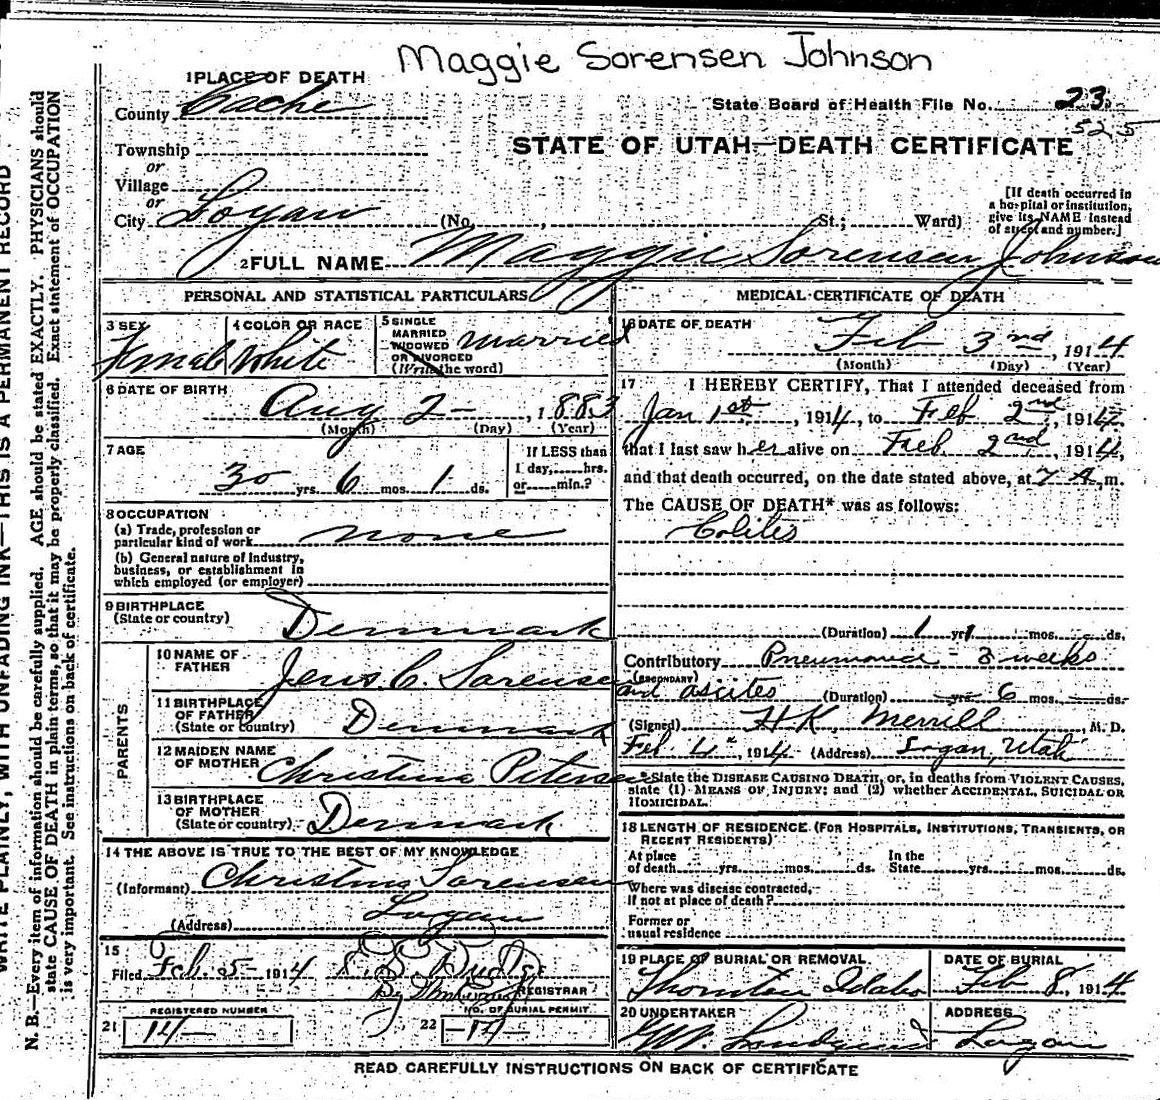 Maggie Sorensen Johnson
1 PLACE OF DEATH
County Cache
State Board of Health File No. 23
525
Township
or
Village
or
City Logan (No. , St.; Ward)
STATE OF UTAH—DEATH CERTIFICATE
[If death occurred in
a hospital or institution,
give its NAME instead
of street and number.]
2 FULL NAME Maggie Sorensen Johnson
PERSONAL AND STATISTICAL PARTICULARS
3 SEX
Female
4 COLOR OR RACE
White
5 SINGLE
MARRIED
WIDOWED
OR DIVORCED
(Write the word)
married
6 DATE OF BIRTH
Aug 2 , 1883
(Month) (Day) (Year)
7 AGE
30 yrs. 6 mos. 1 ds.
If LESS than
1 day, hrs.
or min.?
8 OCCUPATION
(a) Trade, profession or
particular kind of work none
(b) General nature of industry,
business, or establishment in
which employed (or employer)
9 BIRTHPLACE
(State or country) Denmark
PARENTS
10 NAME OF
FATHER Jens C. Sorensen
11 BIRTHPLACE
OF FATHER
(State or country) Denmark
12 MAIDEN NAME
OF MOTHER Christina Petersen
13 BIRTHPLACE
OF MOTHER
(State or country) Denmark
14 THE ABOVE IS TRUE TO THE BEST OF MY KNOWLEDGE
(Informant) Christina Sorensen
(Address) Logan
15
Filed Feb. 5- 1914
By
REGISTRAR
REGISTERED NUMBER
21 14
NO. OF BURIAL PERMIT
22 14
MEDICAL CERTIFICATE OF DEATH
16 DATE OF DEATH
Feb 3rd , 1914
(Month) (Day) (Year)
17 I HEREBY CERTIFY, That I attended deceased from
Jan 1st , 1914, to Feb 2nd , 1914
that I last saw her alive on Feb. 2nd , 1914,
and that death occurred, on the date stated above, at 7 A.m.
The CAUSE OF DEATH* was as follows:
Colites
(Duration) 1 yr mos. ds.
Contributory Pneumonia - 3 weeks
(SECONDARY)
and ascites (Duration) yrs 6 mos. ds.
(Signed) H K Merrill , M. D.
Feb. 4th , 1914 (Address) Logan, Utah
*State the DISEASE CAUSING DEATH, or, in deaths from VIOLENT CAUSES,
state (1) MEANS OF INJURY; and (2) whether ACCIDENTAL, SUICIDAL OR
HOMICIDAL.
18 LENGTH OF RESIDENCE (FOR HOSPITALS, INSTITUTIONS, TRANSIENTS, OR
RECENT RESIDENTS)
At place In the
of death yrs. mos. ds. State yrs. mos. ds.
Where was disease contracted,
if not at place of death?
Former or
usual residence
19 PLACE OF BURIAL OR REMOVAL
Thornton Idaho
DATE OF BURIAL
Feb 8, 1914
20 UNDERTAKER
ADDRESS
Logan
READ CAREFULLY INSTRUCTIONS ON BACK OF CERTIFICATE
WRITE PLAINLY, WITH UNFADING INK—THIS IS A PERMANENT RECORD
N. B.—Every item of information should be carefully supplied. AGE should be stated EXACTLY. PHYSICIANS should
state CAUSE OF DEATH in plain terms, so that it may be properly classified. Exact statement of OCCUPATION
is very important. See instructions on back of certificate.